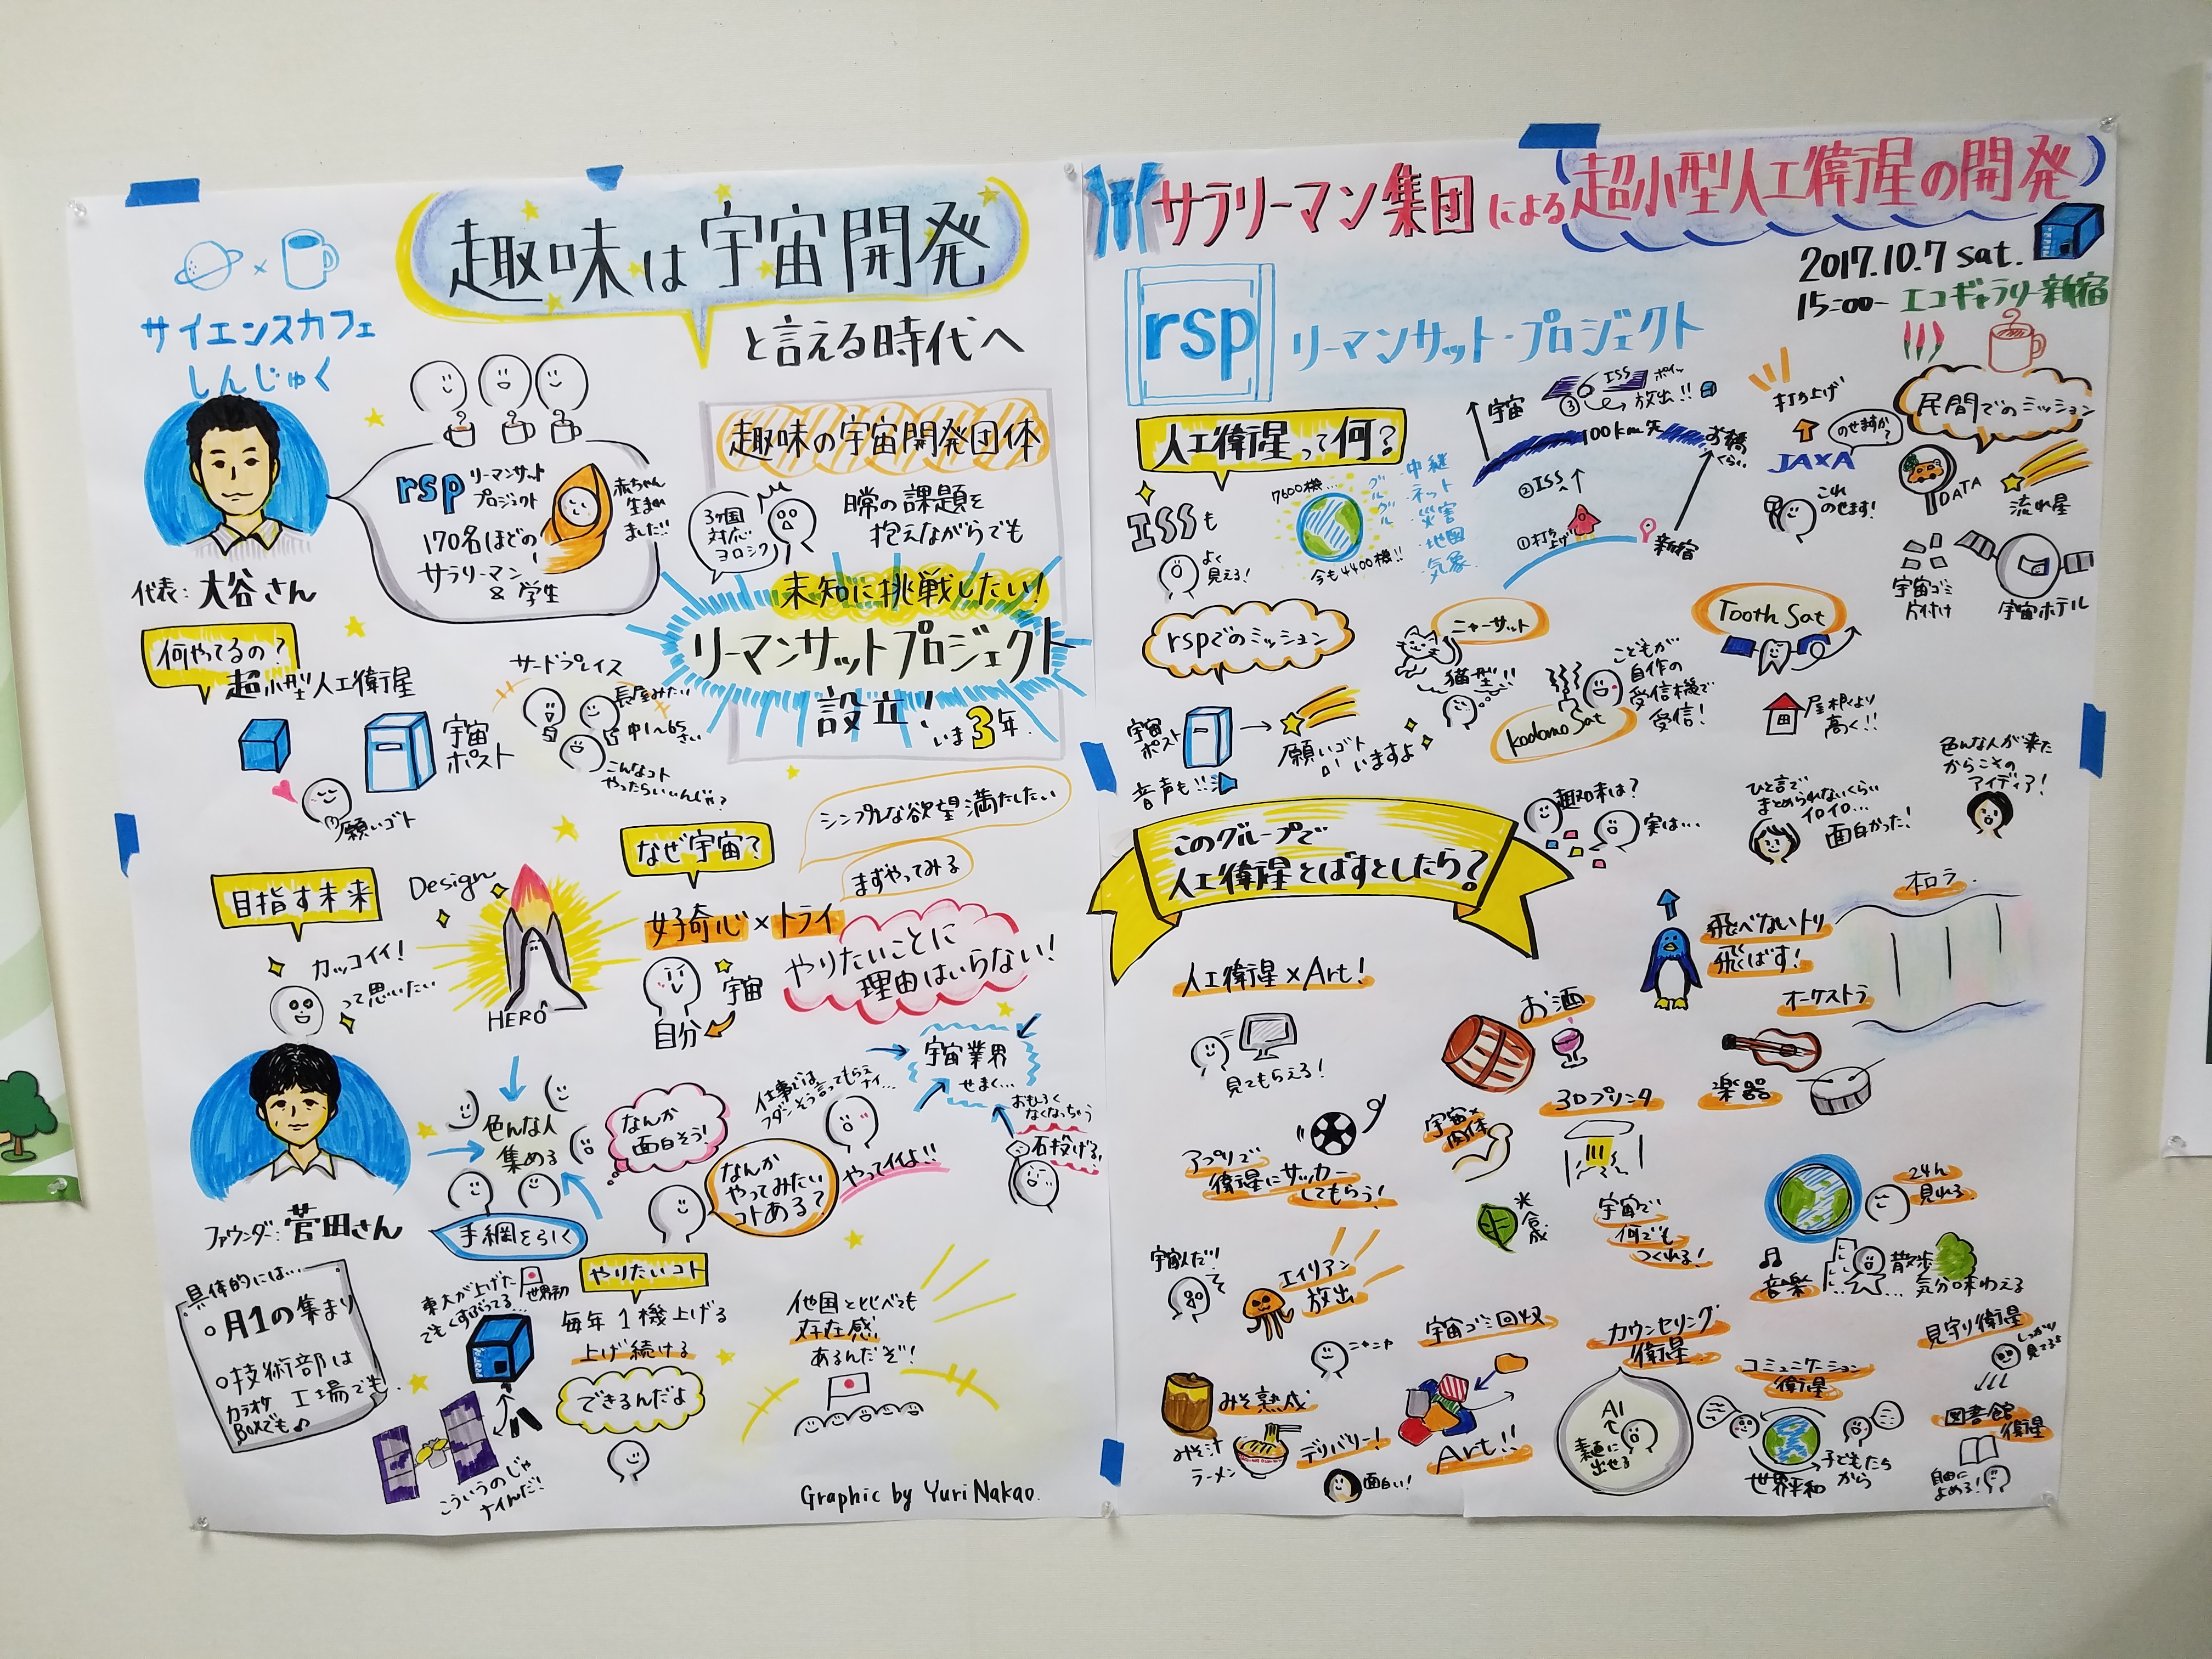 サイエンスカフェ
しんじゅく
趣味は宇宙開発
と言える時代へ
rsp リーマンサット
プロジェクト
170名ほどの
サラリーマン
& 学生
赤ちゃん
生まれ
ました!!
代表: 大谷さん
趣味の宇宙開発団体
3ヶ国
対応
ヨロシク
日常の課題を
抱えながらでも
未知に挑戦したい!
リーマンサットプロジェクト
設立!
いま3年
何やってるの?
超小型人工衛星
宇宙
ポスト
願いゴト
サードプレイス
長屋みたい
中1〜65さい
こんなコト
やったらいいんじゃ?
目指す未来
カッコイイ!
って思いたい
Design
HERO
なぜ宇宙?
シンプルな欲望満たしたい
まずやってみる
好奇心×トライ
宇宙
自分
やりたいことに
理由はいらない!
ファウンダー: 菅田さん
色んな人
集める
手綱を引く
なんか
面白そう!
なんか
やってみたい
コトある?
仕事では
フダンそう言ってもらえ
ナイ...
やってイイよ!!
宇宙業界
せまく...
おもしろく
なくなっちゃう
石投げる!
具体的には...
○月1の集まり
○技術部は
工場でも
カラオケ
BOXでも♪
東大が上げた
世界初
でもくすぶってる...
こういうのじゃ
ナイんだ!
やりたいコト
毎年1機上げる
上げ続ける
できるんだよ
他国とくらべても
存在感
あるんだぞ!
Graphic by Yuri Nakao.
サラリーマン集団による超小型人工衛星の開発
2017.10.7 sat.
15:00- エコギャラリー新宿
rsp リーマンサット・プロジェクト
人工衛星って何?
ISSも
よく
見える!
7600機...
グルグル
今も4400機!!
・中継
・ネット
・災害
・地図
・気象
宇宙
③
ISS
ポイッ
放出!!
100km先
②ISS
①打ち
上げ
新宿
打ち上げ
のせますか?
JAXA
これ
のせます!
民間でのミッション
DATA
流れ星
宇宙ゴミ
片付け
宇宙ホテル
rspでのミッション
宇宙
ポスト
願いゴト
いいますよ
音声も!!
ニャーサット
猫型!!
kodomo Sat
こどもが
自作の
受信機で
受信!
Tooth Sat
屋根より
高く!!
このグループで
人工衛星とばすとしたら?
趣味は?
実は...
ひと言で
まとめられないくらい
イロイロ...
面白かった!
色んな人が来た
からこその
アイディア!
人工衛星×Art!
見てもらえる!
アプリで
衛星にサッカー
してもらう!
お酒
宇宙×
肉体
光合成
3Dプリンタ
宇宙で
何でも
つくれる!
飛べないトリ
飛ばす!
オーロラ
オーケストラ
楽器
24h
見れる
音楽
散歩
気分味わえる
宇宙人だ!!
エイリアン
放出
ニヤニヤ
みそ熟成
みそ汁
ラーメン
デリバリー!
面白い!
宇宙ゴミ回収
Art!!
カウンセリング
衛星
AI
素直に
出せる
コミュニケーション
衛星
世界平和
子どもたち
から
見守り衛星
しっかり
見てるよ
図書館
衛星
自由に
よめる!